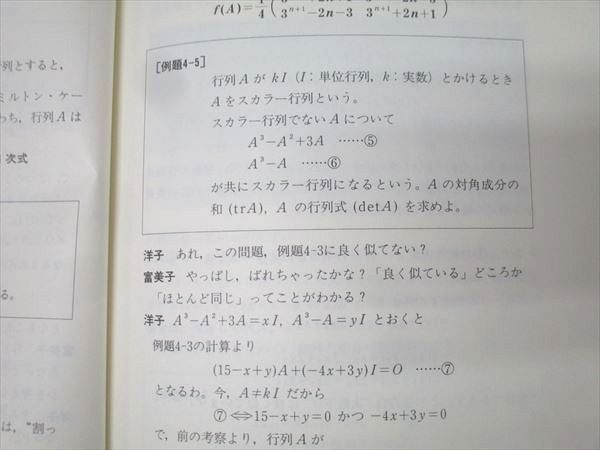 f(A)=1/4
3ⁿ⁺¹−2n−3　3ⁿ⁺¹+2n+1
列とすると,
ミルトン・ケー
わち, 行列Aは
次式
る。
は, "割っ
[例題4-5]
行列AがkI (I：単位行列, k：実数) とかけるとき
Aをスカラー行列という。
スカラー行列でないAについて
A³−A²+3A ……⑤
A³−A ……⑥
が共にスカラー行列になるという。Aの対角成分の
和 (trA), Aの行列式 (detA) を求めよ。
洋子　あれ, この問題, 例題4-3に良く似てない？
富美子　やっぱし, ばれちゃったかな？「良く似ている」どころか
「ほとんど同じ」ってことがわかる？
洋子　A³−A²+3A=xI, A³−A=yI とおくと
例題4-3の計算より
(15−x+y)A+(−4x+3y)I=O ……⑦
となるわ。今, A≠kI だから
⑦ ⟺15−x+y=0 かつ −4x+3y=0
で, 前の考察より, 行列Aが